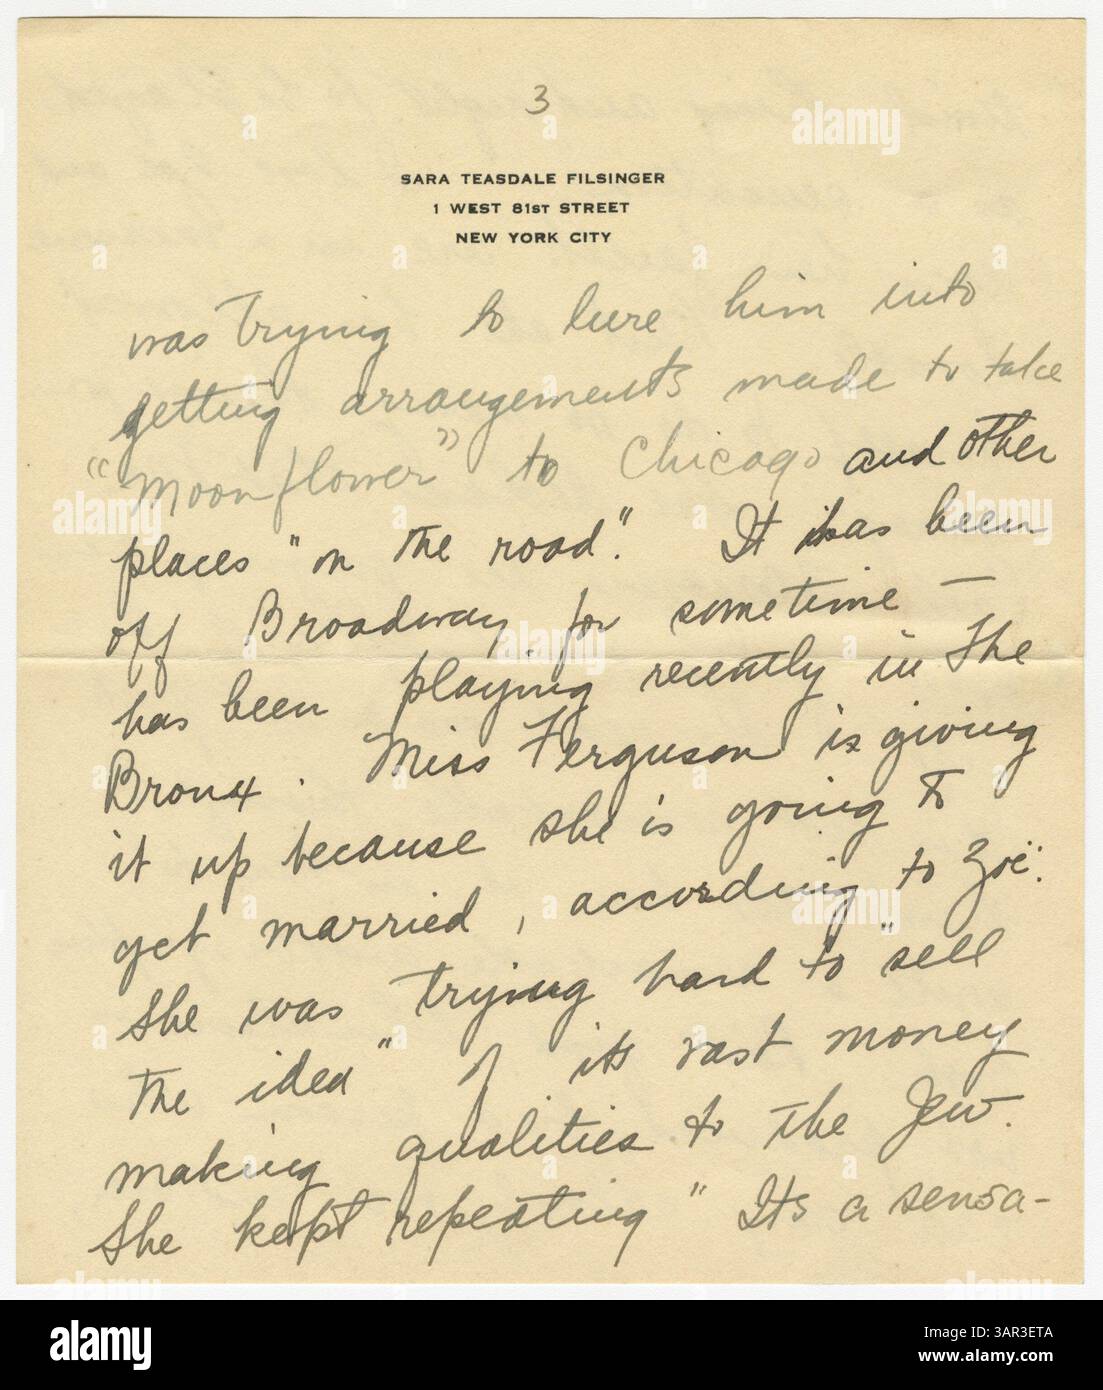 3
SARA TEASDALE FILSINGER
1 WEST 81ST STREET
NEW YORK CITY
was trying to lure him into
getting arrangements made to take
"Moonflower" to Chicago and other
places "on the road". It has been
off Broadway for sometime —
has been playing recently in the
Bronx. Miss Ferguson is giving
it up because she is going to
get married, according to Zoë.
She was trying hard to "sell
the idea" of its vast money
making qualities to the Jew.
She kept repeating "Its a sensa-
alamy
Image ID: 3AR3ETA
www.alamy.com